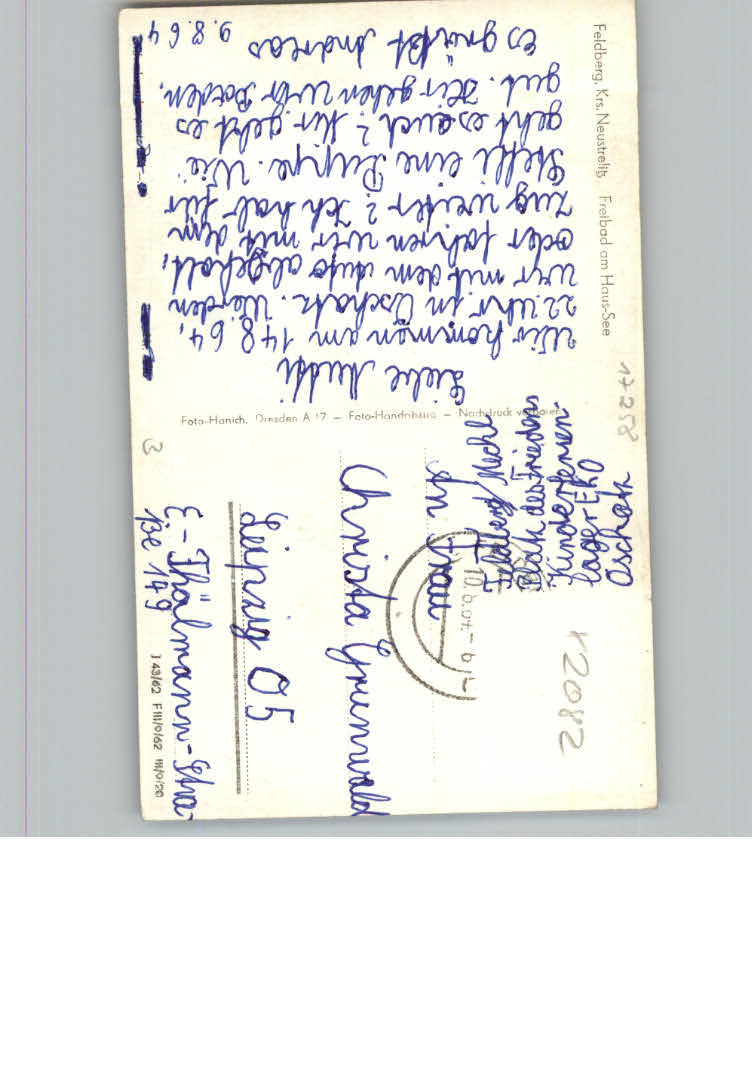 Feldberg, Krs. Neustrelitz Freibad am Haus-See
Liebe Mutti
Wir kommen am 14.8.64,
22 Uhr in Oschatz. Werden
wir mit dem Auto abgeholt,
oder fahren wir mit dem
Zug weiter? Ich hab für
Steffi eine Puppe. Wie
geht es euch? Mir geht es
gut. Hir gehen wir Baden.
Es grüßt Andreas
9.8.64
Foto-Hanich, Dresden A 17 – Foto-Handabzug – Nachdruck verboten
Feldberg/Meckl
Platz des Friedens
Kinderferien-
lager EKO
Oschatz
An Frau
Christa Grunwald
Leipzig O5
E-Thälmann-Stra-
ße 149
J 43/62 F III/0/62 III/0/20
17258
12082
3